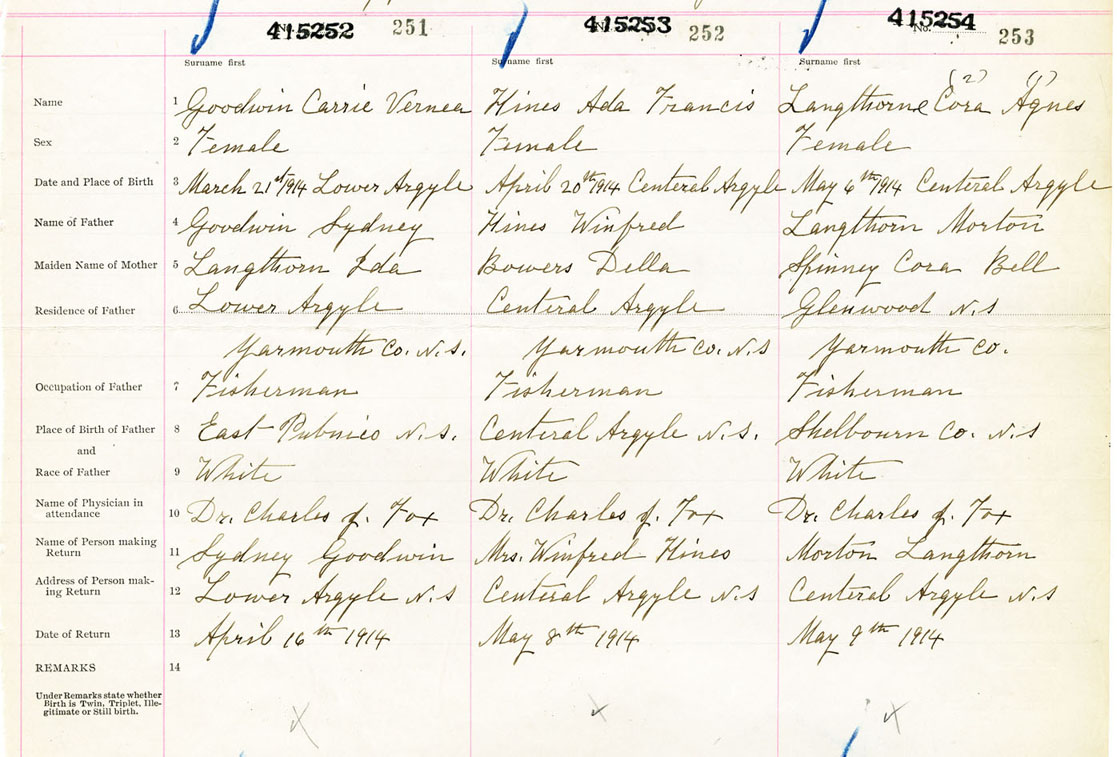 415252 251 415253 252 415254 253
No.
Surname first Surname first Surname first
(2) (1)
Name 1 Goodwin Carrie Vernea Hines Ada Francis Langthorne Cora Agnes
Sex 2 Female Female Female
Date and Place of Birth 3 March 21st/1914 Lower Argyle April 20th/1914 Centeral Argyle May 6th/1914 Centeral Argyle
Name of Father 4 Goodwin Sydney Hines Winfred Langthorn Morton
Maiden Name of Mother 5 Langthorn Ida Bowers Della Spinney Cora Bell
Residence of Father 6 Lower Argyle Centeral Argyle Glenwood N.S
Yarmouth Co. N.S. Yarmouth Co. N.S Yarmouth Co.
Occupation of Father 7 Fisherman Fisherman Fisherman
Place of Birth of Father 8 East Pubnico N.S. Centeral Argyle N.S. Shelbourn Co. N.S
and
Race of Father 9 White White White
Name of Physician in
attendance 10 Dr. Charles J. Fox Dr. Charles J. Fox Dr. Charles J. Fox
Name of Person making
Return 11 Sydney Goodwin Mrs. Winfred Hines Morton Langthorn
Address of Person mak-
ing Return 12 Lower Argyle N.S Centeral Argyle N.S Centeral Argyle N.S
Date of Return 13 April 16th 1914 May 8th 1914 May 9th 1914
REMARKS 14
Under Remarks state whether
Birth is Twin, Triplet, Ille-
gitimate or Still birth.